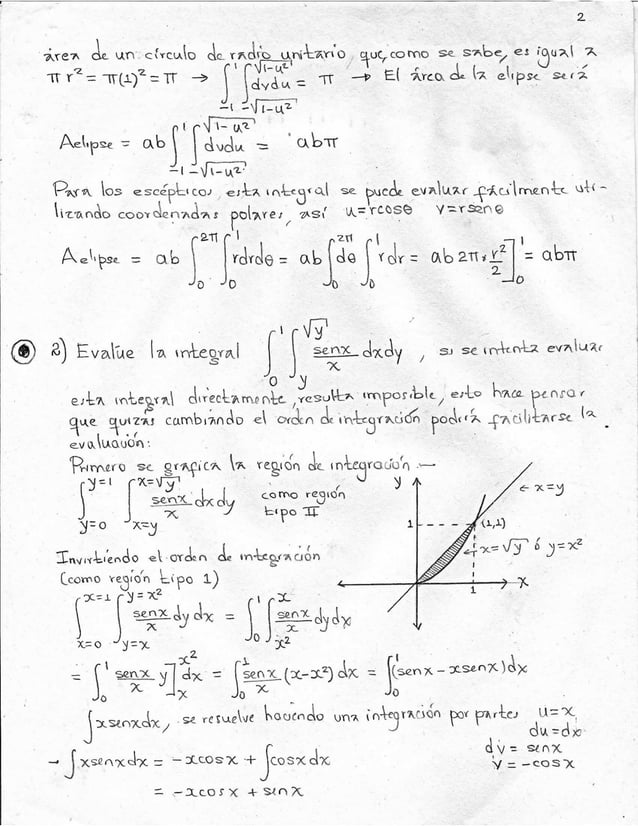 2
área de un círculo de radio unitario, que, como se sabe, es igual a
π r² = π(1)² = π → ∫₋₁¹ ∫_{-√(1-u²)}^{√(1-u²)} dvdu = π → El área de la elipse será
Aelipse = ab ∫₋₁¹ ∫_{-√(1-u²)}^{√(1-u²)} dvdu = abπ
Para los escépticos, esta integral se puede evaluar fácilmente uti-
lizando coordenadas polares, así u=rcosθ v=rsenθ
Aelipse = ab ∫₀^{2π} ∫₀¹ rdrdθ = ab ∫₀^{2π} dθ ∫₀¹ rdr = ab 2π * r²/2 ]₀¹ = abπ
2) Evalúe la integral ∫₀¹ ∫_y^{√y} senx/x dxdy , si se intenta evaluar
esta integral directamente, resulta imposible, esto hace pensar
que quizás cambiando el orden de integración podría facilitarse la
evaluación:
Primero se grafica la región de integración.—
∫_{y=0}^{y=1} ∫_{x=y}^{x=√y} senx/x dxdy como región
tipo II
y
← x=y
1
(1,1)
← x=√y ó y=x²
1
x
Invirtiendo el orden de integración
(como región tipo 1)
∫_{x=0}^{x=1} ∫_{y=x}^{y=x²} senx/x dy dx = ∫₀¹ ∫_{x²}^{x} senx/x dydx
= ∫₀¹ senx/x y]_x^{x²} dx = ∫₀¹ senx/x (x-x²) dx = ∫₀¹ (senx - xsenx)dx
∫xsenxdx, se resuelve haciendo una integración por partes u=x,
du=dx
dv = senx
v = -cosx
- ∫xsenxdx = -xcosx + ∫cosxdx
= -xcosx + senx